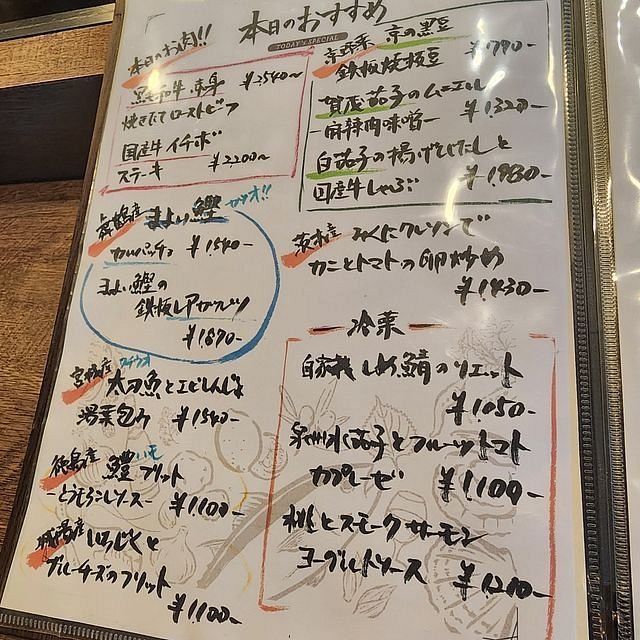 本日のおすすめ
TODAY'S SPECIAL
本日のお肉!!
黒毛和牛 赤身 ¥2,540~
焼きたてローストビーフ
国産牛 イチボ
ステーキ ¥2,200~
京野菜 京の黒豆
鉄板焼枝豆 ¥790-
賀茂茄子のムニエル
-麻辣肉味噌- ¥1,320-
白茄子の揚げびたしと
国産牛しゃぶ ¥1,980-
産 まよい鰹 カツオ!!
カルパッチョ ¥1,540-
まよい鰹の
鉄板レアカツ
¥1,870-
産 みくにクレソンで
カニとトマトの卵炒め
¥1,430-
冷菜
自家製 しめ鯖のリエット
¥1,050-
泉州水茄子とフルーツトマト
カプレーゼ ¥1,100-
桃とスモークサーモン
ヨーグルトソース ¥1,210-
宮城産 タチウオ
太刀魚とエビしんじょ
湯葉包み ¥1,540-
徳島産 鱧 フリット
-とうもろこしソース- ¥1,100-
城陽産 いちじくと
ブルーチーズのフリット
¥1,100-